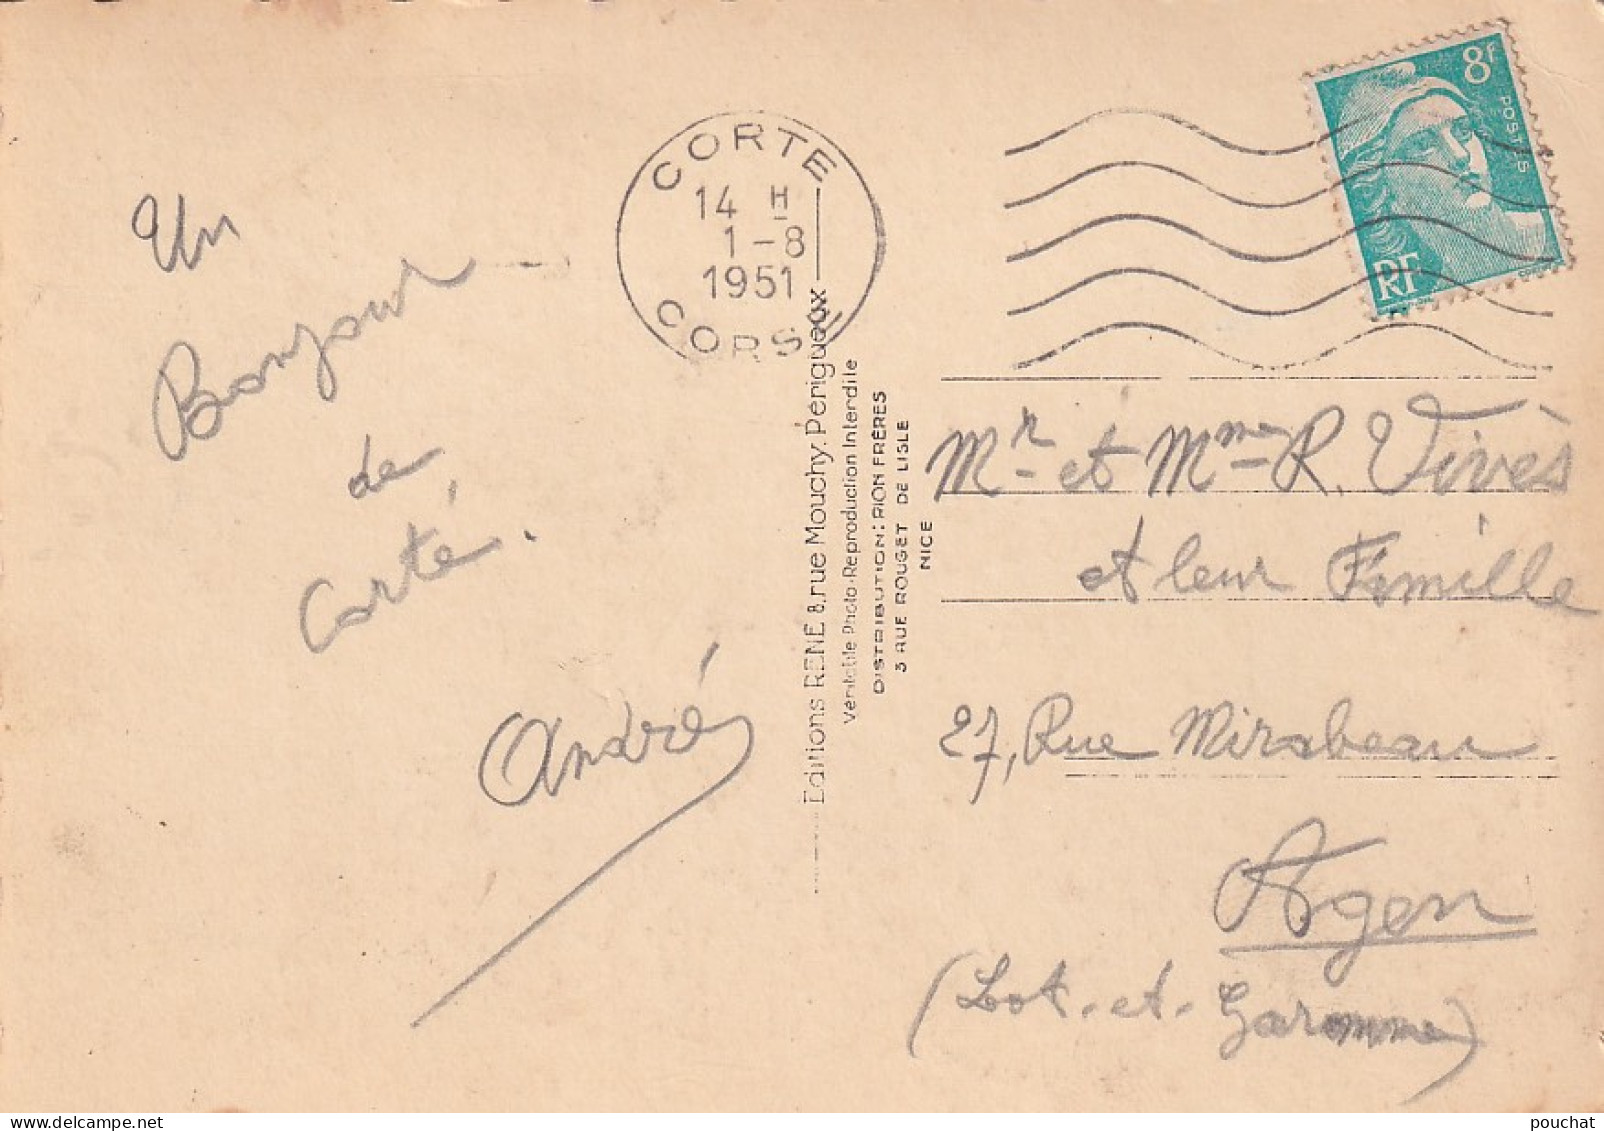 Un
Bonjour
de
Corté.
André
CORTE
14 H
1-8
1951
CORSE
8F
POSTES
RF
Editions RENÉ 8, rue Mouchy. Périgueux
Véritable Photo-Reproduction Interdite
DISTRIBUTION: RION FRÈRES
3 RUE ROUGET DE LISLE
NICE
Mr et Mme R. Vivès
et leur Famille
27, Rue Mirabeau
Agen
(Lot-et-Garonne)
pouchat